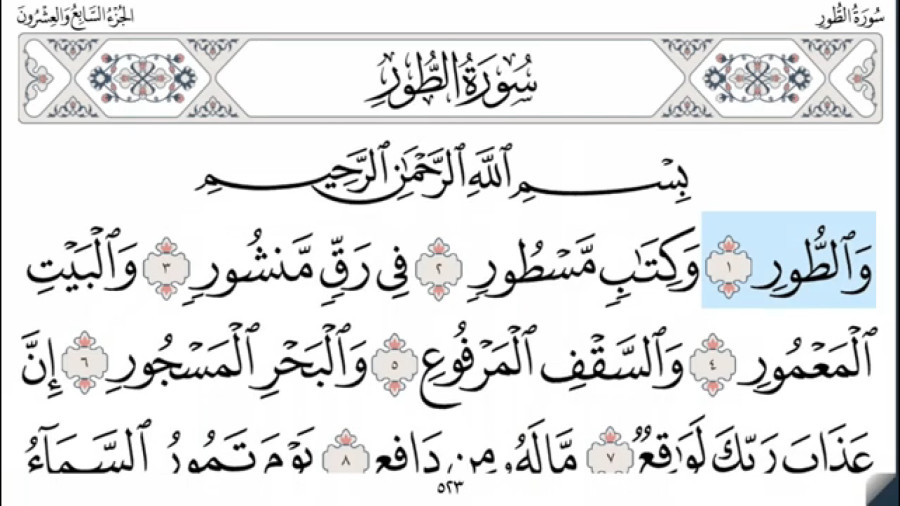 سُورَةُ الطُّورِ
الجُزْءُ السَّابِعُ وَالعِشْرُونَ
سُورَةُ الطُّورِ
بِسْمِ ٱللَّهِ ٱلرَّحْمَٰنِ ٱلرَّحِيمِ
وَٱلطُّورِ ١ وَكِتَٰبٍ مَّسْطُورٍ ٢ فِى رَقٍّ مَّنشُورٍ ٣ وَٱلْبَيْتِ
ٱلْمَعْمُورِ ٤ وَٱلسَّقْفِ ٱلْمَرْفُوعِ ٥ وَٱلْبَحْرِ ٱلْمَسْجُورِ ٦ إِنَّ
عَذَابَ رَبِّكَ لَوَٰقِعٌ ٧ مَّا لَهُۥ مِن دَافِعٍ ٨ يَوْمَ تَمُورُ ٱلسَّمَآءُ
٥٢٣